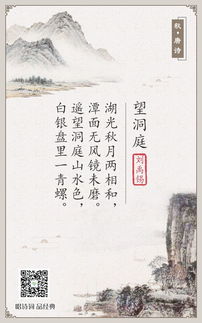 秋·唐诗
望洞庭
刘禹锡
湖光秋月两相和，
潭面无风镜未磨。
遥望洞庭山水色，
白银盘里一青螺。
唱诗词 品经典